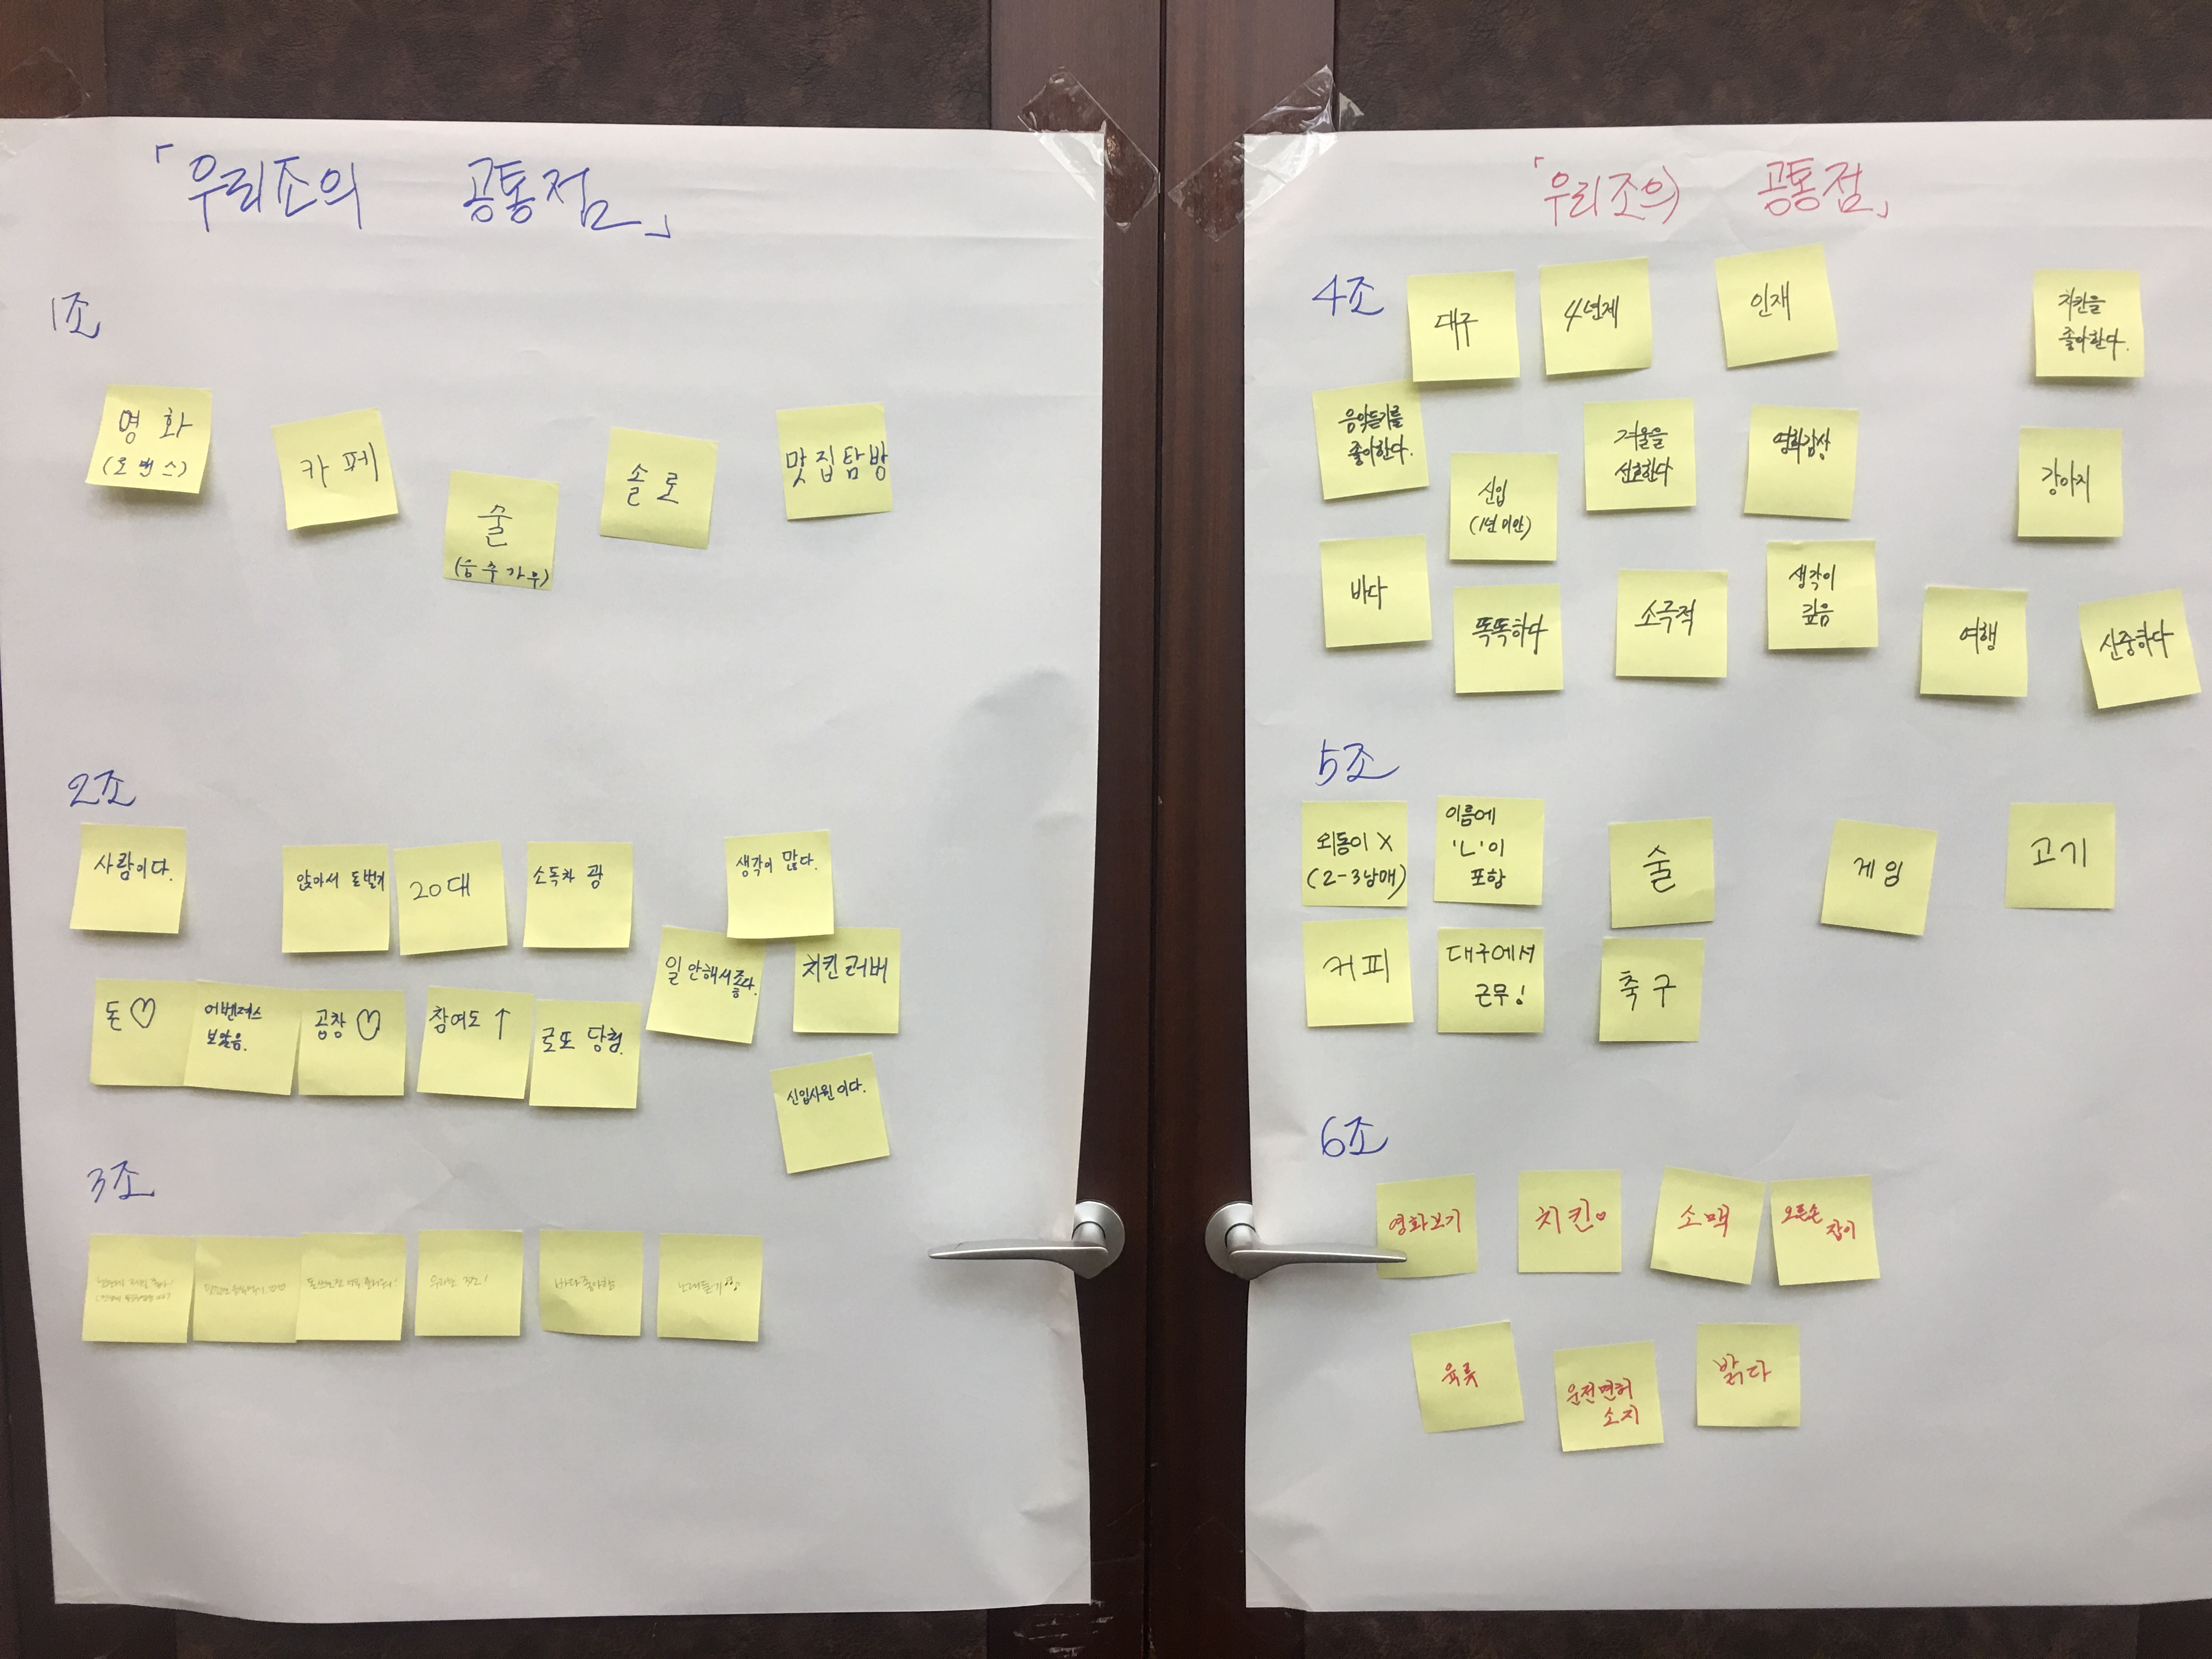 「우리조의 공통점」
1조
영화
(로맨스)
카페
술
(음주가무)
솔로
맛집탐방
2조
사람이다.
앉아서 돈벌기
20대
소독차 광
생각이 많다.
돈♡
어벤져스
보았음.
곱창♡
참여도↑
로또 당첨.
일 안해서 좋다.
치킨러버
신입사원이다.
3조
우리는 3조!
바다좋아함
노래듣기
「우리조의 공통점」
4조
대구
4년제
인재
치킨을
좋아한다.
음악듣기를
좋아한다.
신입
(1년 미만)
겨울을
선호한다
영화감상
강아지
바다
똑똑하다
소극적
생각이
깊음
여행
신중하다
5조
외동이 X
(2-3남매)
이름에
'ㄴ'이
포함
술
게임
고기
커피
대구에서
근무!
축구
6조
영화보기
치킨♡
소맥
오른손
잡이
육류
운전면허
소지
밝다